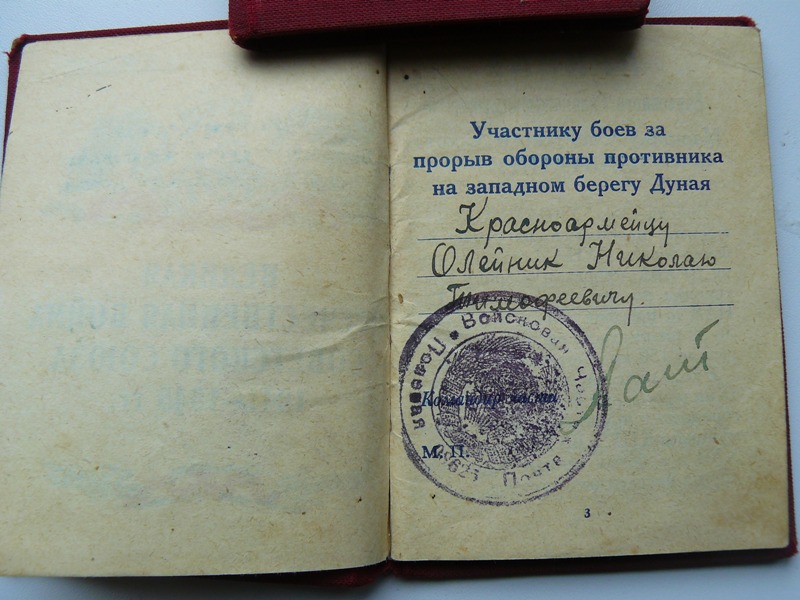 Участнику боев за
прорыв обороны противника
на западном берегу Дуная
Красноармейцу
Олейник Николаю
Тимофеевичу.
Полевая Почта Войсковая Часть
Командир части
М. П.
3